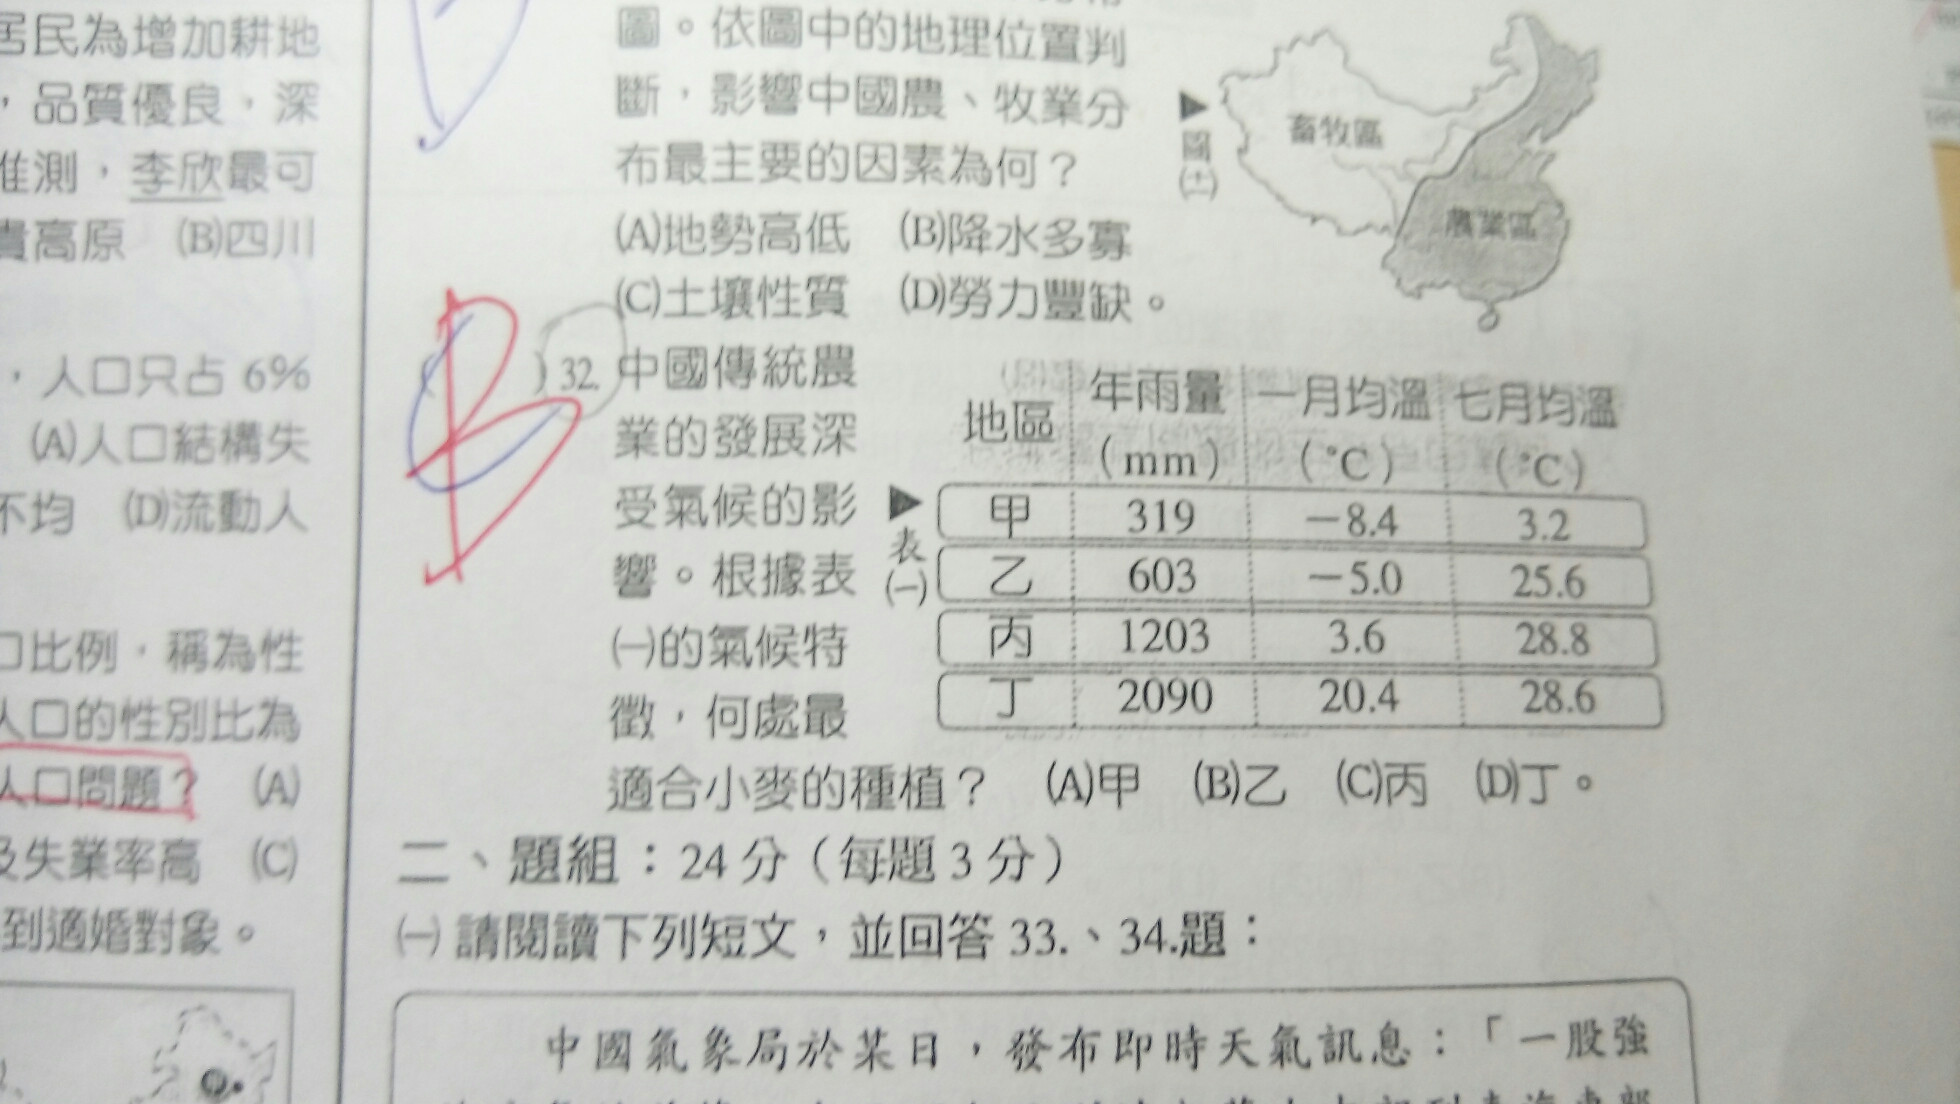 居民為增加耕地
，品質優良，深
推測，李欣最可
貴高原 (B)四川
，人口只占 6%
(A)人口結構失
不均 (D)流動人
口比例，稱為性
人口的性別比為
人口問題？ (A)
及失業率高 (C)
到適婚對象。
圖。依圖中的地理位置判
斷，影響中國農、牧業分
布最主要的因素為何？
(A)地勢高低 (B)降水多寡
(C)土壤性質 (D)勞力豐缺。
▶圖(十)
畜牧區
農業區
B
)32. 中國傳統農
業的發展深
受氣候的影
響。根據表
(一)的氣候特
徵，何處最
適合小麥的種植？ (A)甲 (B)乙 (C)丙 (D)丁。
▶表(一)
地區 年雨量(mm) 一月均溫(℃) 七月均溫(℃)
甲 319 －8.4 3.2
乙 603 －5.0 25.6
丙 1203 3.6 28.8
丁 2090 20.4 28.6
二、題組：24 分（每題 3 分）
(一) 請閱讀下列短文，並回答 33.、34.題：
中國氣象局於某日，發布即時天氣訊息：「一股強